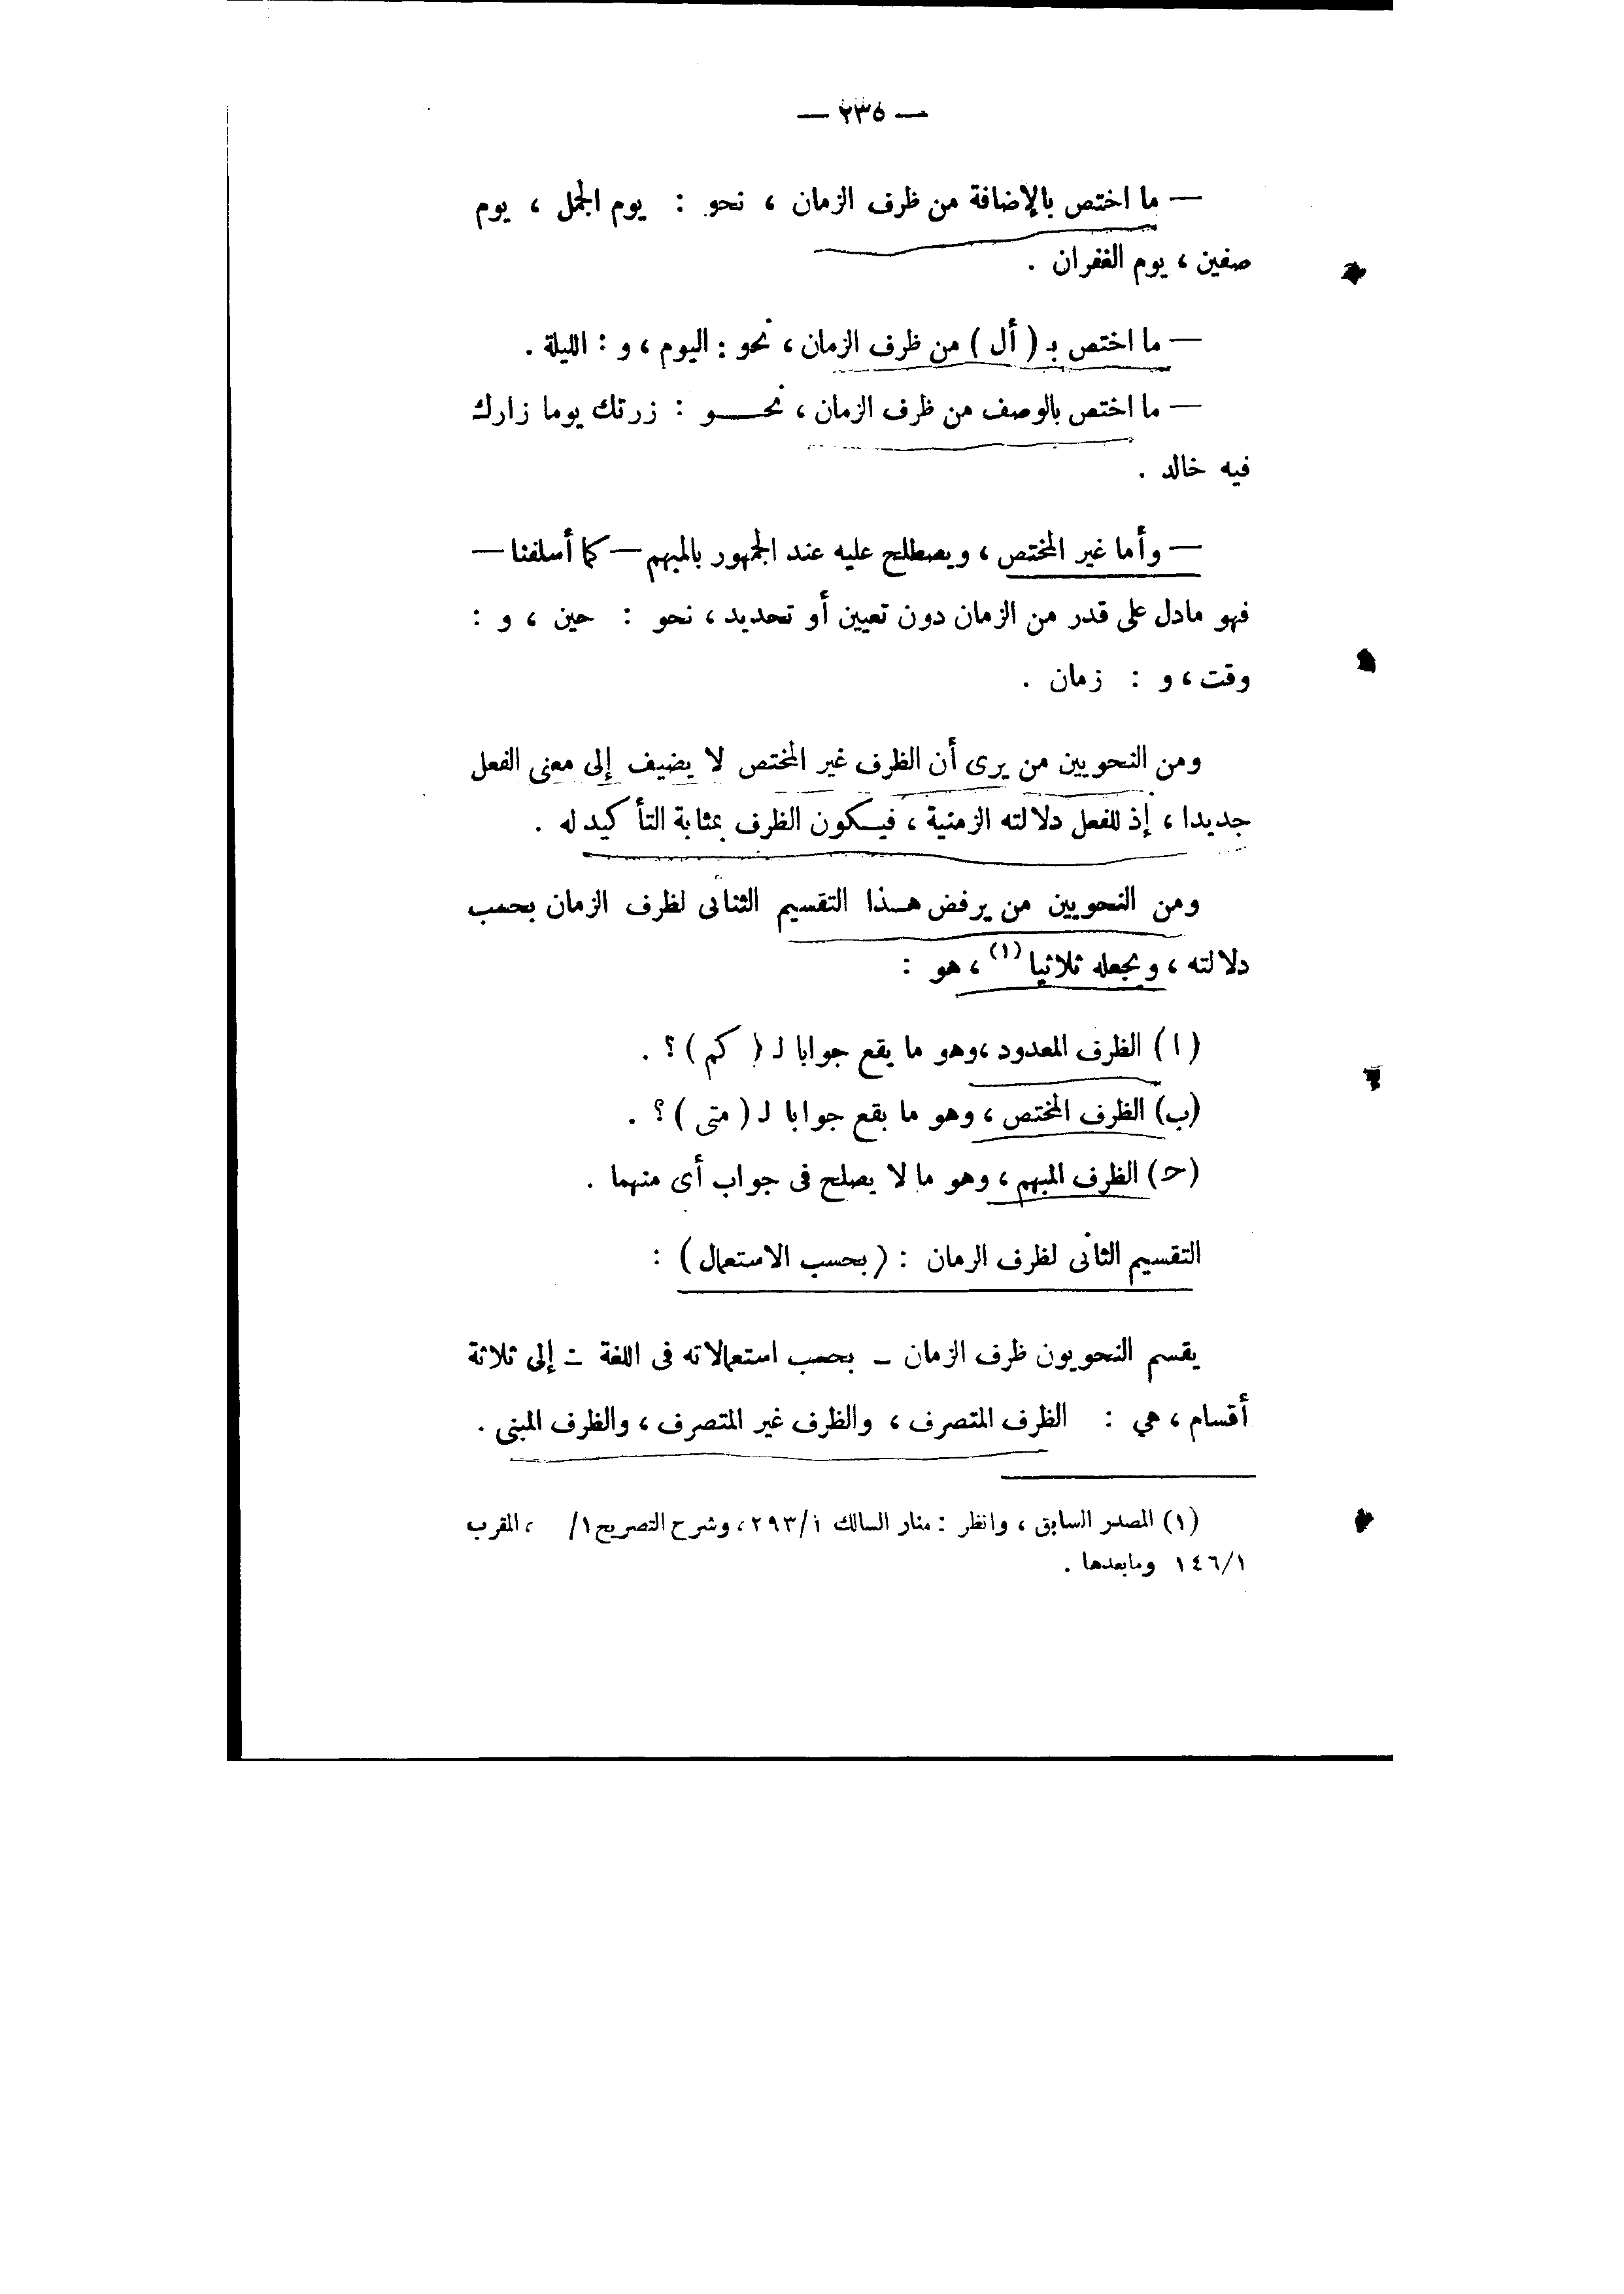 — ٢٣٥ —
— ما اختص بالإضافة من ظرف الزمان ، نحو : يوم الجمل ، يوم
صفين ، يوم الغفران .
— ما اختص بـ ( أل ) من ظرف الزمان ، نحو : اليوم ، و : الليلة .
— ما اختص بالوصف من ظرف الزمان ، نحـــو : زرتك يوما زارك
فيه خالد .
— وأما غير المختص ، ويصطلح عليه عند الجمهور بالمبهم — كما أسلفنا —
فهو مادل على قدر من الزمان دون تعيين أو تحديد ، نحو : حين ، و :
وقت ، و : زمان .
ومن النحويين من يرى أن الظرف غير المختص لا يضيف إلى معنى الفعل
جديدا ، إذ للفعل دلالته الزمنية ، فيـكون الظرف بمثابة التأكيد له .
ومن النحويين من يرفض هـذا التقسيم الثنائى لظرف الزمان بحسب
دلالته ، ويجعله ثلاثيا (١) ، هو :
( ا ) الظرف المعدود ، وهو ما يقع جوابا لـ ( كم ) ؟ .
(ب) الظرف المختص ، وهو ما يقع جوابا لـ ( متى ) ؟ .
(حـ) الظرف المبهم ، وهو ما لا يصلح فى جواب أى منهما .
التقسيم الثانى لظرف الزمان : ( بحسب الاستعمال ) :
يقسم النحويون ظرف الزمان – بحسب استعمالاته فى اللغة – إلى ثلاثة
أقسام ، هي : الظرف المتصرف ، والظرف غير المتصرف ، والظرف المبنى .
(١) المصدر السابق ، وانظر : منار السالك ١/ ٢٩٣ ، وشرح التصريح ١/ ، المقرب
١/ ١٤٦ ومابعدها .